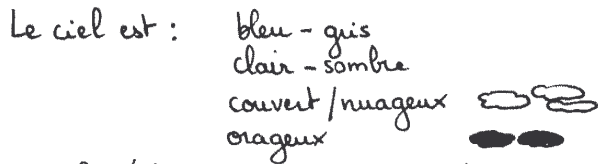 Le ciel est : bleu - gris
clair - sombre
couvert / nuageux
orageux